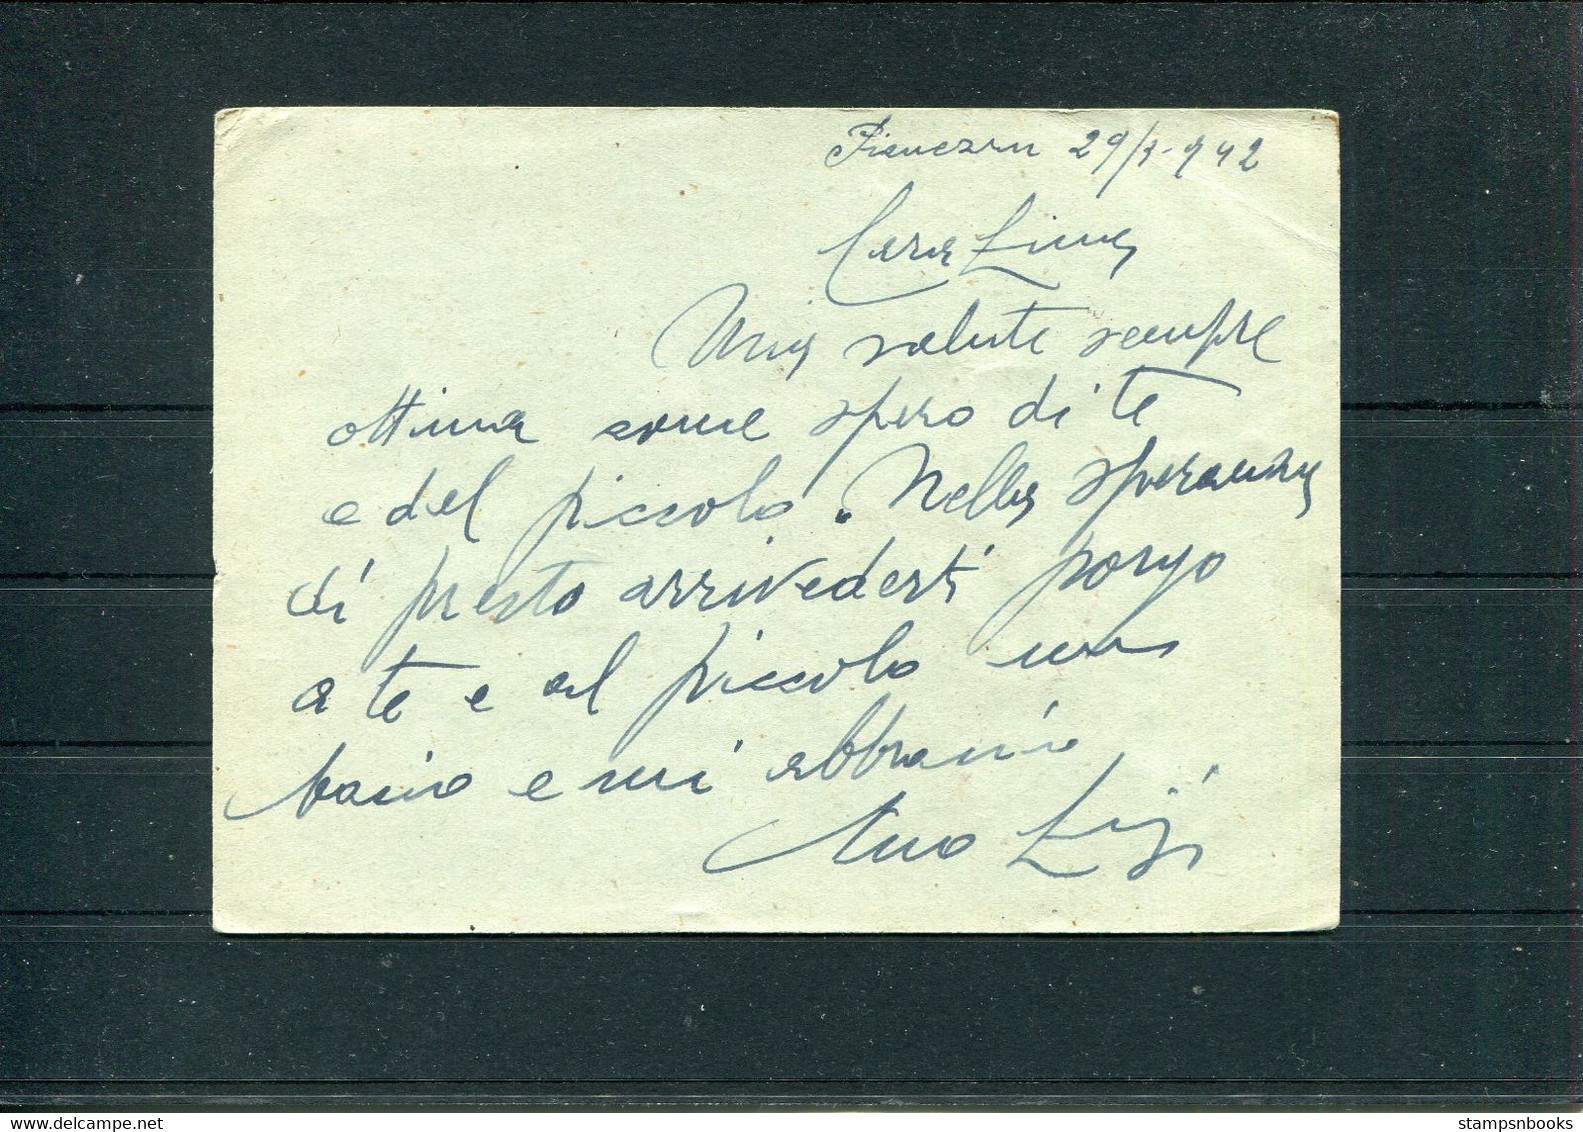 Pianezza 29/3-942
Cara Lina
Mia salute sempre
ottima come spero di te
e del piccolo. Nella speranza
di presto arrivederti porgo
a te e al piccolo un
bacio e mi abbracio
tuo Gigi
stampsnbooks